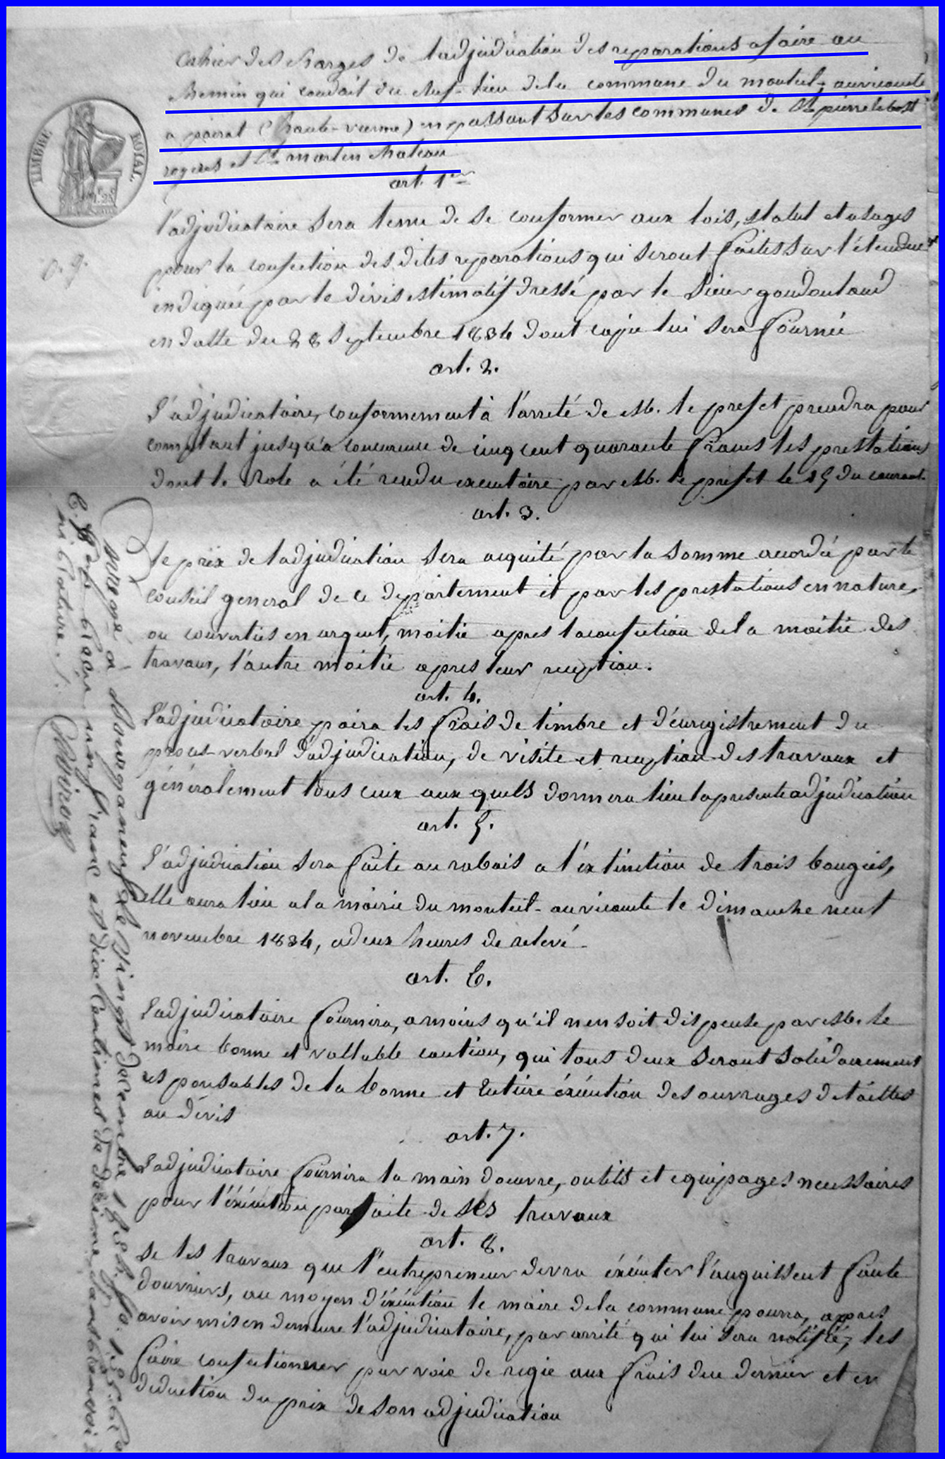 Cahier des charges de l'adjudication des reparations a faire au
chemin qui conduit du chef-lieu de la commune du monteil-au vicomte
a peirat (haute-vienne) en passant sur les communes de St pierre le bost
royere et St martin chateau
art. 1er
TIMBRE ROYAL.
l'adjudicataire sera tenu de se conformer aux lois, statut et usages
pour la confection des dites reparations qui seront faites sur l'étendue
indiquée par le dévis estimatif dressé par le Sieur goudoulaud
en datte du 28 Septembre 1834 dont copie lui sera fournie
art. 2.
l'adjudicataire, conformement à l'arrêté de Mr. le prefet prendra pour
comptant jusqu'a concurrence de cinq cent quarante francs les prestations
dont le role a été rendu executoire par Mr. le prefet le 15 du courant.
art. 3.
le prix de l'adjudication sera acquité par la somme accordée par le
conseil general de ce departement et par les prestations en nature,
ou converties en argent, moitié apres la confection de la moitié des
travaux, l'autre moitié apres leur reception.
art. 4.
l'adjudicataire paira les frais de timbre et d'enregistrement du
proces-verbal d'adjudication, de visite et reception des travaux et
généralement tous ceux aux quels donnera lieu la presente adjudication
art. 5.
l'adjudication sera faite au rabais a l'extinction de trois bougies,
elle aura lieu a la mairie du monteil-au vicomte le dimanche neuf
novembre 1834, a deux heures de relevé.
art. 6.
l'adjudicataire fournira, a moins qu'il n'en soit dispensé par Mr. le
maire bonne et vallable caution, qui tous deux seront solidairement
responsables de la bonne et entiere éxécution des ouvrages detaillés
au dévis
art. 7.
l'adjudicataire fournira la main d'oeuvre, outils et equipages necessaires
pour l'éxécution parfaite de ses travaux
art. 8.
se les travaux que l'entrepreneur devra éxécuter languissent faute
d'ouvriers, au moyen d'éxécution le maire de la commune pourra, apres
avoir mis en demeure l'adjudicataire, par arrêté qui lui sera notifié, les
faire confectionner par voie de regie aux frais du dernier et en
deduction du prix de son adjudication
Bourganeuf le vingt